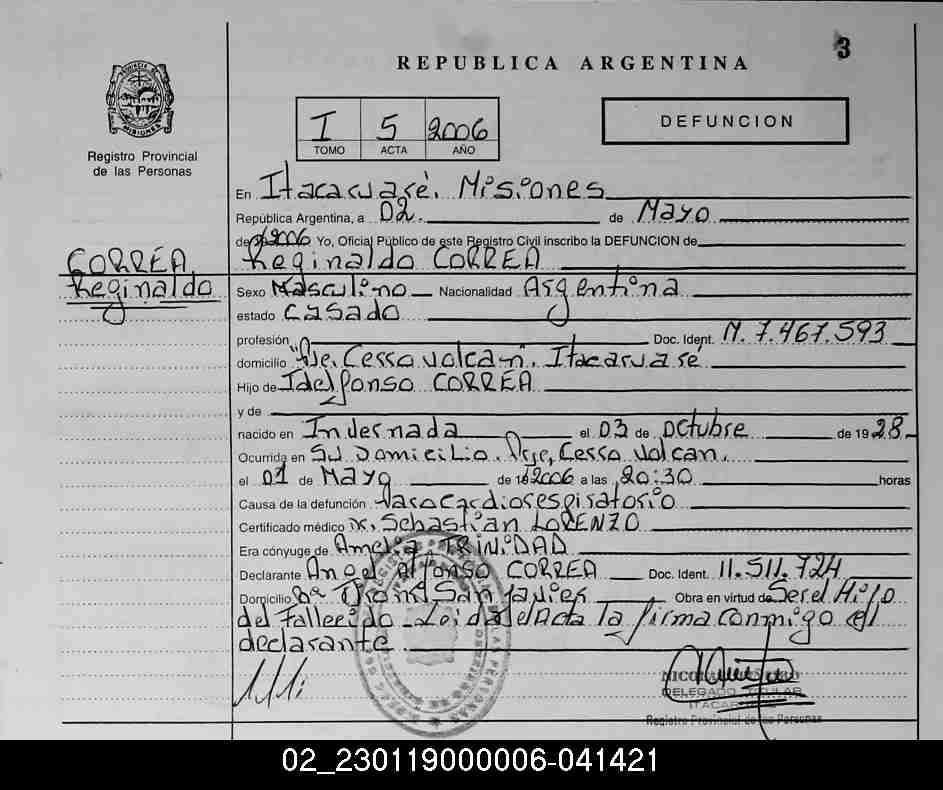 3
REPUBLICA ARGENTINA
PROVINCIA DE
MISIONES
Registro Provincial
de las Personas
I 5 2006
TOMO ACTA AÑO
DEFUNCION
En Itacaruaré. Misiones
República Argentina, a 02. de Mayo
de 2006 Yo, Oficial Público de este Registro Civil inscribo la DEFUNCION de
CORRÉA
Reginaldo
Reginaldo CORREA
Sexo Masculino Nacionalidad Argentina
estado Casado
profesión Doc. Ident. M. 7.467.593
domicilio Cerro volcan. Itacaruaré
Hijo de Idelfonso CORREA
y de
nacido en Invernada el 03 de octubre de 1928
Ocurrida en Su Domicilio. Cerro volcan.
el 01 de Mayo de 2006 a las 20:30 horas
Causa de la defunción Parocardiorespiratorio
Certificado médico Dr. Sebastian LORENZO
Era cónyuge de Amelia TRINIDAD
Declarante Angel Alfonso CORREA Doc. Ident. 11.511.724
Domicilio San Javier Obra en virtud de Ser el Hijo
del Fallecido Leida el Acta la firma conmigo el
declarante.
DELEGADO TITULAR
Registro Provincial de las Personas
02_230119000006-041421